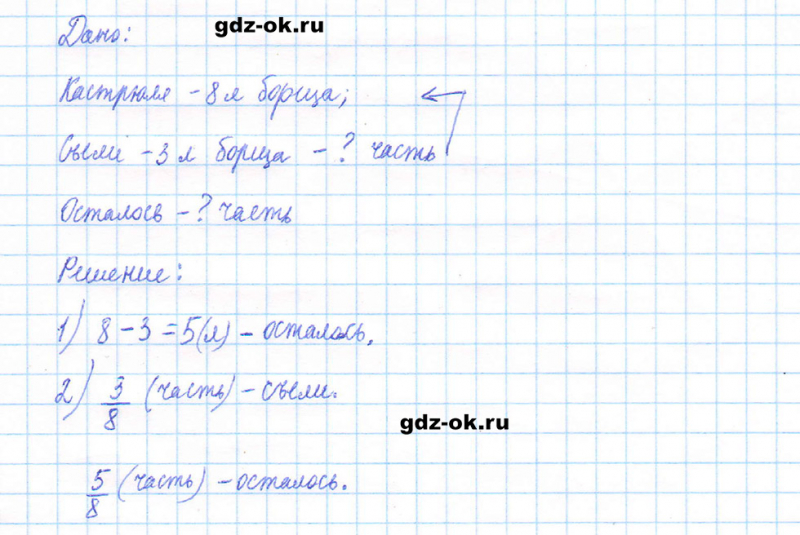 gdz-ok.ru
Дано:
Кастрюля - 8 л борща;
Съели - 3 л борща - ? часть
Осталось - ? часть
Решение:
1) 8 - 3 = 5(л) - осталось,
2) 3/8 (часть) - съели.
gdz-ok.ru
5/8 (часть) - осталось.